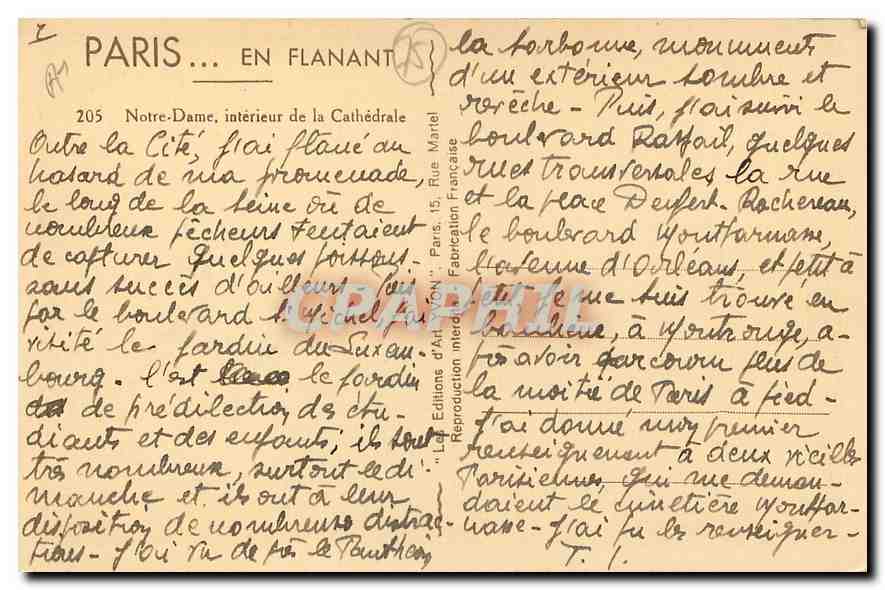 7
PARIS... EN FLANANT
25
205 Notre-Dame, intérieur de la Cathédrale
Outre la Cité, j'ai flâné au
hasard de ma promenade,
le long de la Seine où de
nombreux pêcheurs tentaient
de capturer quelques poissons -
sans succès d'ailleurs. Puis
par le boulevard St Michel j'ai
visité le jardin du Luxem-
bourg - C'est le jardin
de prédilection des étu-
diants et des enfants; ils sont
très nombreux, surtout le di-
manche et ils ont à leur
disposition de nombreuses distrac-
tions - J'ai vu de près le Panthéon
"Les Editions d'Art YVON". Paris, 15, Rue Martel
Reproduction interdite Fabrication Française
la Sorbonne, monuments
d'un extérieur sombre et
revêche - Puis, j'ai suivi le
boulevard Raspail, quelques
rues transversales, la rue
et la place Denfert-Rochereau,
le boulevard Montparnasse,
l'avenue d'Orléans, et petit à
petit je me suis trouvé en
banlieue, à Montrouge, a-
près avoir parcouru plus de
la moitié de Paris à pied -
J'ai donné mon premier
renseignement à deux vieilles
Parisiennes, qui me deman-
daient le cimetière Montpar-
nasse - J'ai pu les renseigner -
CPAPHIL